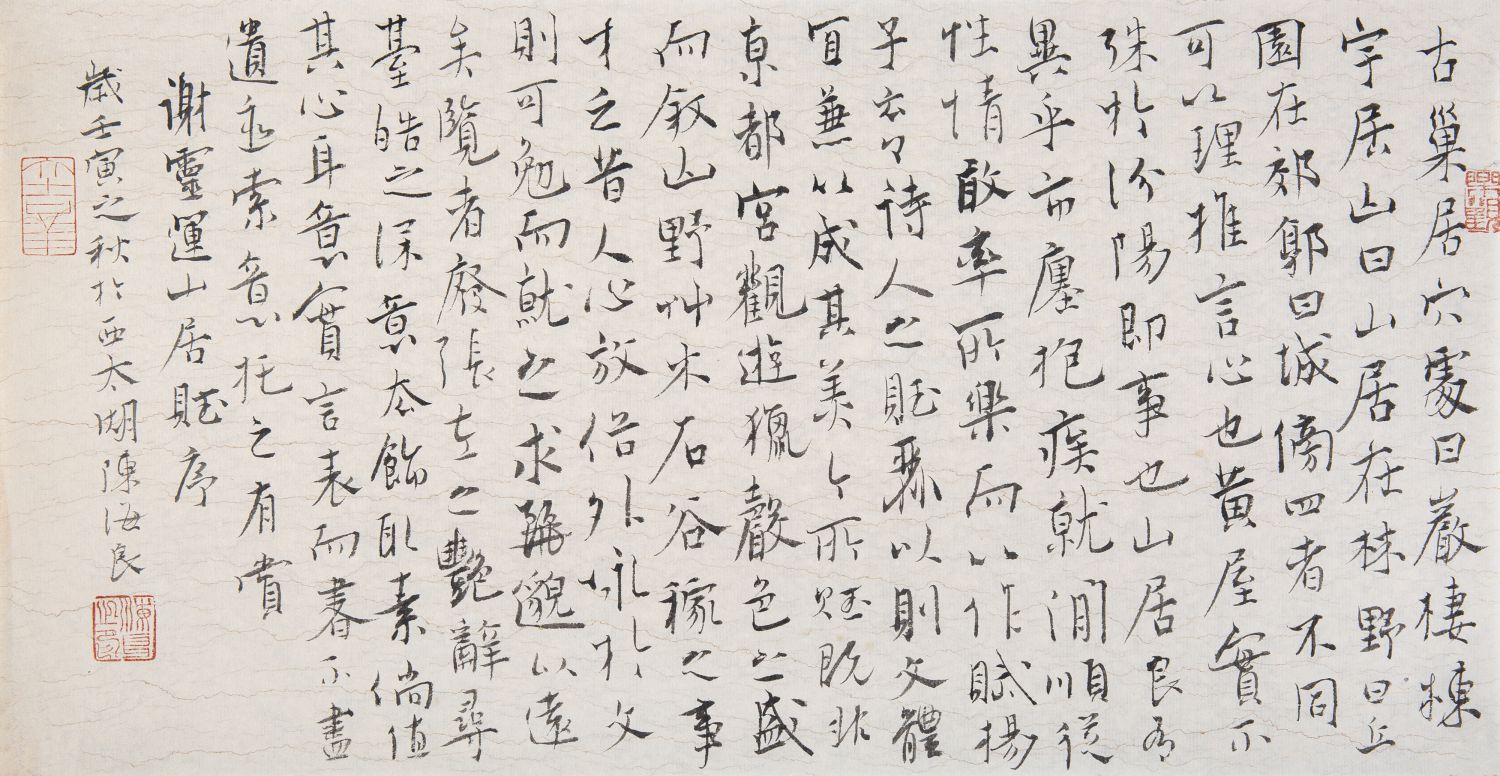 古巢居穴處曰巖棲棟
宇居山曰山居在林野曰丘
園在郊郭曰城傍四者不同
可以理推言心也黃屋實不
殊於汾陽即事也山居良有
異乎市廛抱疾就閒順從
性情敢率所樂而以作賦揚
子云云詩人之賦麗以則文體
宜兼以成其美今所賦既非
京都宮觀遊獵聲色之盛
而敘山野艸木石谷稼之事
才乏昔人心放俗外詠於文
則可勉而就之求麗邈以遠
矣覽者廢張左之艷辭尋
臺皓之深意去飾取素倘值
其心耳意實言表而書不盡
遺迹索意托之有賞
謝靈運山居賦序
歲壬寅之秋於西太湖陳海良